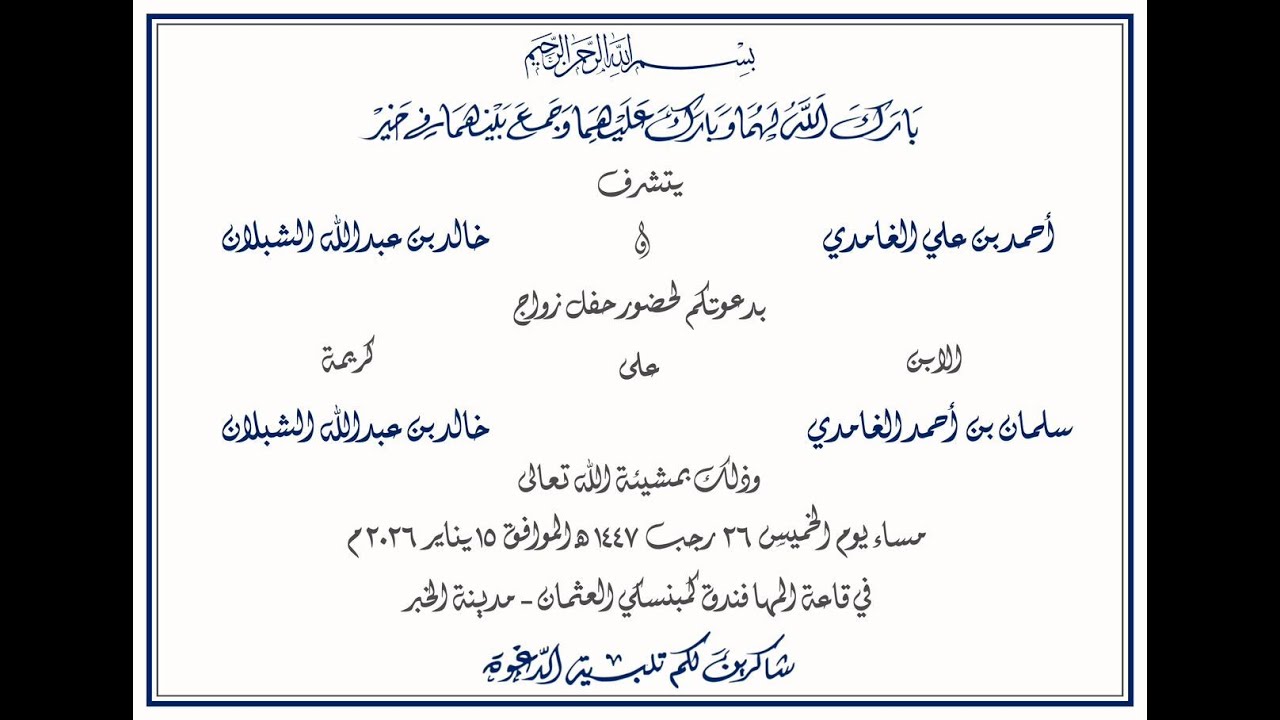 بسم الله الرحمن الرحيم
بَارَكَ اَللَّهُ لَهُمَا وَبَارَكَ عَلَيْهِمَا وَجَمَعَ بَيْنَهُمَا فِي خَيْرْ
يتشرف
أحمد بن علي الغامدي و خالد بن عبدالله الشبلان
بدعوتكم لحضور حفل زواج
الابن على كريمة
سلمان بن أحمد الغامدي خالد بن عبدالله الشبلان
وذلك بمشيئة الله تعالى
مساء يوم الخميس ٢٦ رجب ١٤٤٧ هـ الموافق ١٥ يناير ٢٠٢٦ م
في قاعة المها فندق كمبنسكي العثمان - مدينة الخبر
شاكرين لكم تلبية الدّعوة